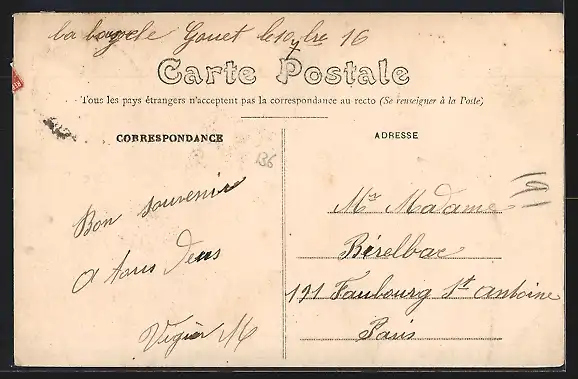 la bazoge Gouet le 10 7bre 16
Carte Postale
Tous les pays étrangers n'acceptent pas la correspondance au recto (Se renseigner à la Poste)
CORRESPONDANCE
ADRESSE
136
Bon souvenir
a tous deus
Vigier M
191
Mr Madame
Bérelbac
191 Faubourg St antoine
Paris